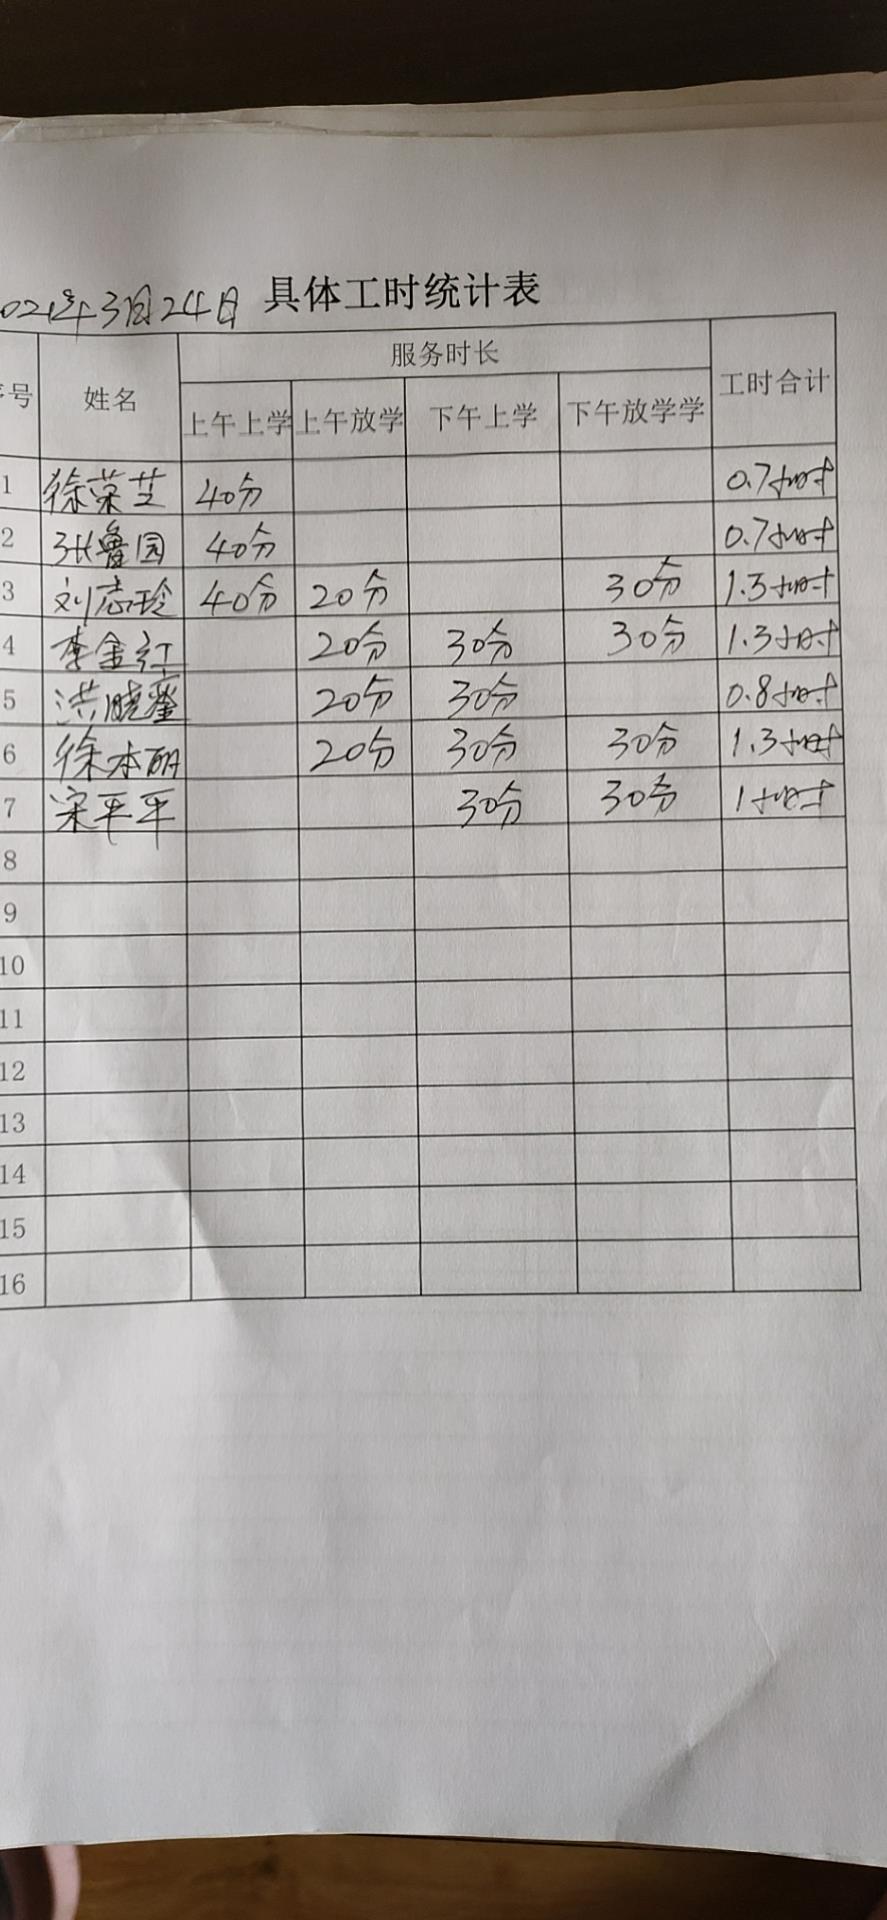 021年3月24日 具体工时统计表
序号 姓名 服务时长 工时合计
上午上学 上午放学 下午上学 下午放学学
1 徐荣芝 40分 0.7小时
2 张鲁园 40分 0.7小时
3 刘志玲 40分 20分 30分 1.5小时
4 李金红 20分 30分 30分 1.3小时
5 洪晓 20分 30分 0.8小时
6 徐本丽 20分 30分 30分 1.3小时
7 宋平平 30分 30分 1小时
8
9
10
11
12
13
14
15
16